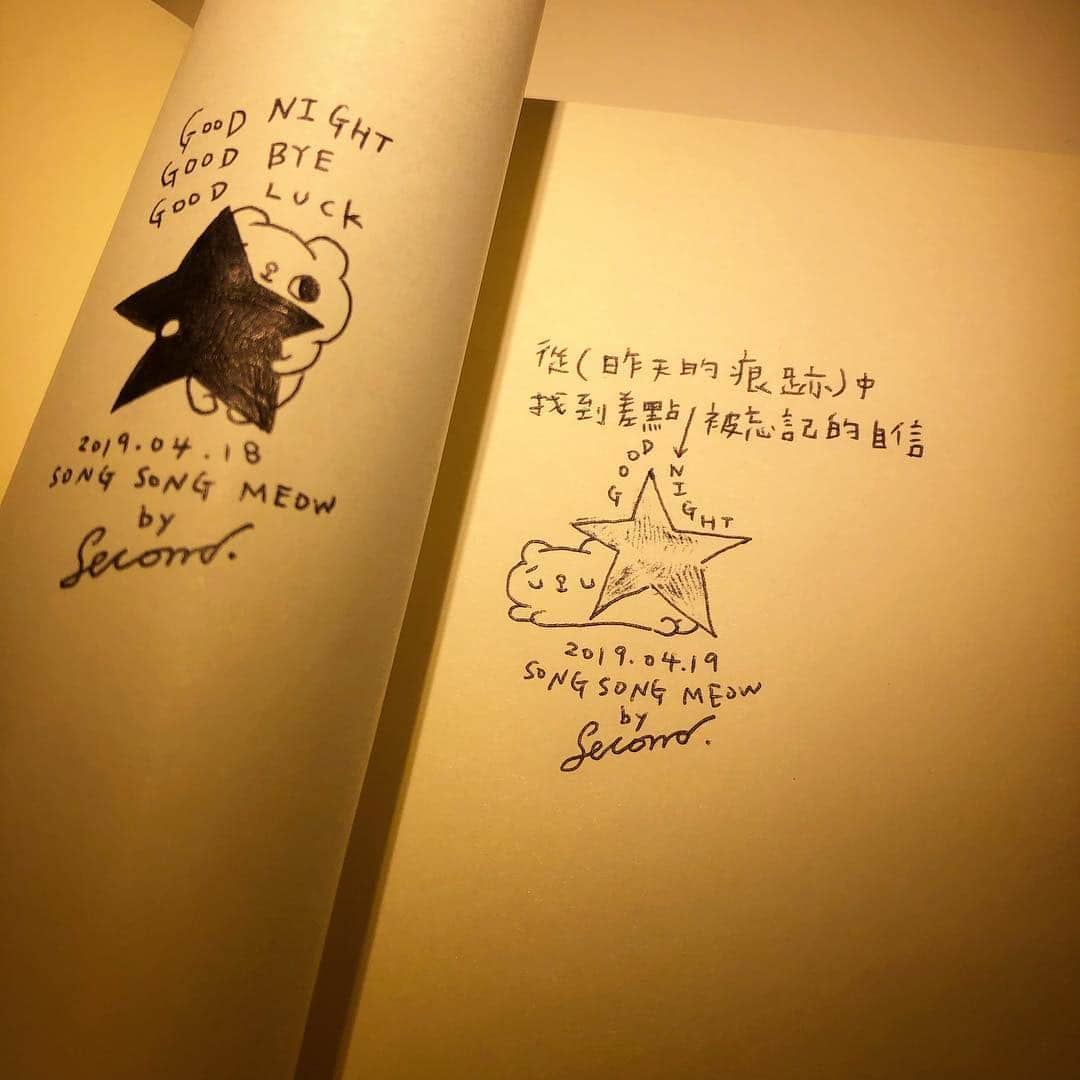 GOOD NIGHT
GOOD BYE
GOOD LUCK
2019.04.18
SONG SONG MEOW
by
Second.
從(昨天的痕跡)中
找到差點 被忘記的自信
GOOD NIGHT
2019.04.19
SONG SONG MEOW
by
Second.